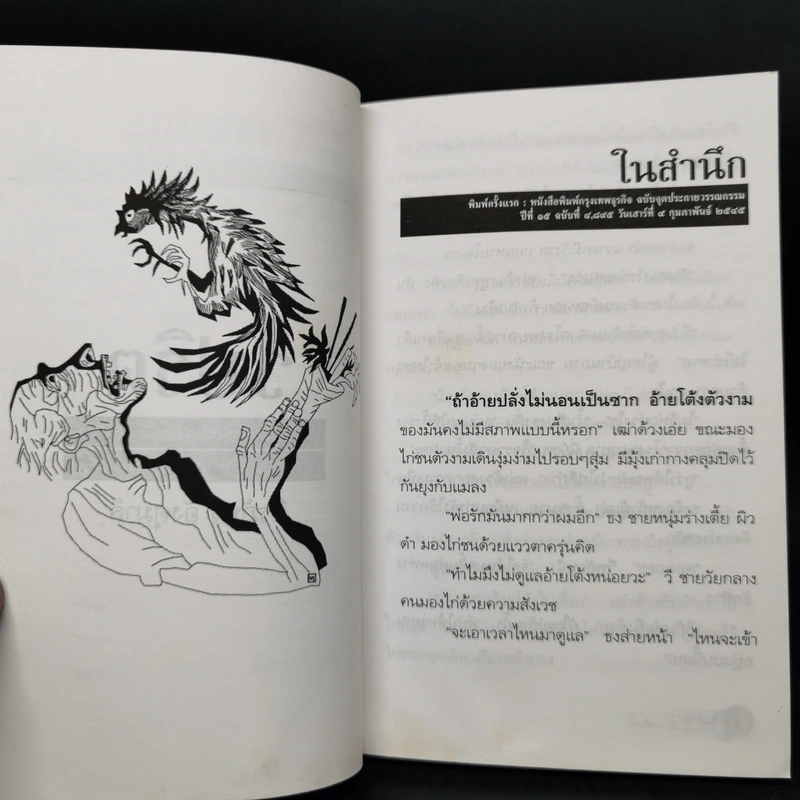 ในสำนึก
พิมพ์ครั้งแรก : หนังสือพิมพ์กรุงเทพธุรกิจ ฉบับจุดประกายวรรณกรรม
ปีที่ ๑๕ ฉบับที่ ๔,๘๙๕ วันเสาร์ที่ ๙ กุมภาพันธ์ ๒๕๔๕
"ถ้าอ้ายปลั่งไม่นอนเป็นซาก อ้ายโต้งตัวงาม
ของมันคงไม่มีสภาพแบบนี้หรอก" เฒ่าด้วงเอ่ย ขณะมอง
ไก่ชนตัวงามเดินงุ่มง่ามไปรอบๆสุ่ม มีมุ้งเก่ากางคลุมปิดไว้
กันยุงกับแมลง
"พ่อรักมันมากกว่าผมอีก" ธง ชายหนุ่มร่างเตี้ย ผิว
ดำ มองไก่ชนด้วยแววตาครุ่นคิด
"ทำไมมึงไม่ดูแลอ้ายโต้งหน่อยวะ" วี ชายวัยกลาง
คนมองไก่ด้วยความสังเวช
"จะเอาเวลาไหนมาดูแล" ธงส่ายหน้า "ไหนจะเช้า